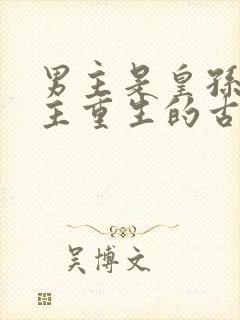 男主是皇孙
主重生的古
吴博文